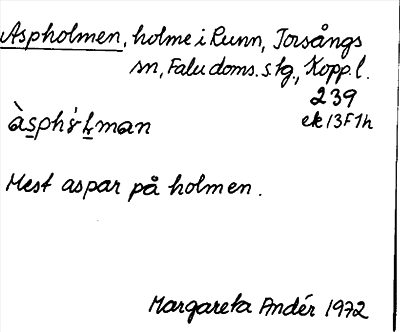 Aspholmen, holme i Runn, Torsångs
sn, Falu doms.stg., Kopp.l.
239
ek 13F1h
Mest aspar på holmen.
Margareta Andér 1972